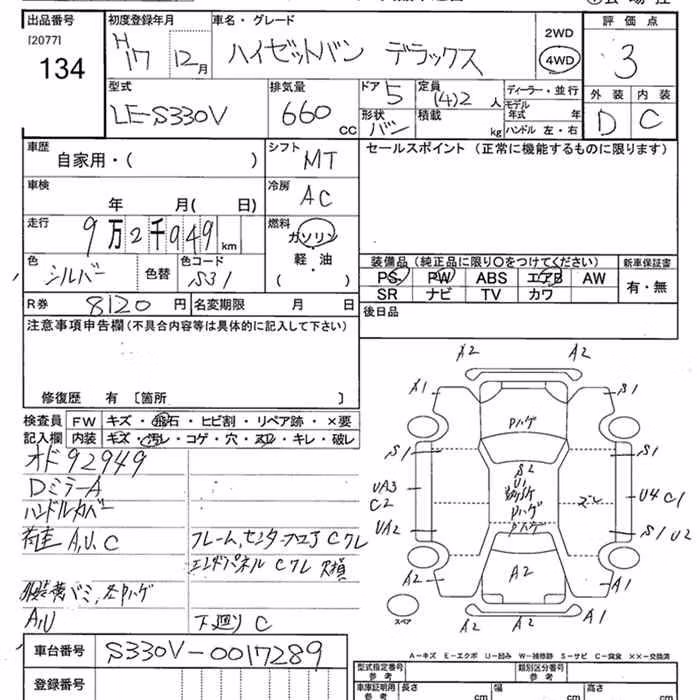 出品番号 初度登録年月 車名・グレード 評価点
[2077]
134
H17 12月 ハイゼットバン デラックス 2WD 4WD 3
型式 排気量 ドア 5 定員 (4)2 人 ディーラー・並行 外装 内装
LE-S330V 660 CC 形状 バン 積載 kg モデル年式 年 D C
ハンドル 左・右
車歴 シフト セールスポイント (正常に機能するものに限ります)
自家用・( ) MT
車検 冷房
年 月( 日) AC
走行 燃料
9万2千949 km ガソリン
軽・油
( )
色 色コード 装備品 (純正品に限り○をつけてください) 新車保証書
シルバー 色替 S31 PS PW ABS エアB AW 有・無
SR ナビ TV カワ
R券 8120 円 名変期限 月 日 後日品
注意事項申告欄 (不具合内容等は具体的に記入して下さい)
修復歴 有 [箇所 ]
検査員 FW キズ・飛石・ヒビ割・リペア跡・×要
記入欄 内装 キズ・汚レ・コゲ・穴・スレ・キレ・破レ
オド92949
Dミラー A
ハンドルカバー
荷室 A,U,C フレーム,センターフロア Cクレ
エンドパネル Cクレ
A,U 下廻り C
A2 A2
A1 S1
Pハゲ
S1 S1
S2
U1
UA3 Pハゲ ズレ U4 C1
C2
UA2 Pハゲ S1 U2
A2 A2 A1
A2 A1
スペア
A-キズ E-エクボ U-凹み W-補修跡 S-サビ C-腐食 ××-交換済
車台番号 S330V-0017289
登録番号
型式指定番号 参考 類別区分番号 参考
車庫証明用 参考 長さ cm 幅 cm 高さ cm